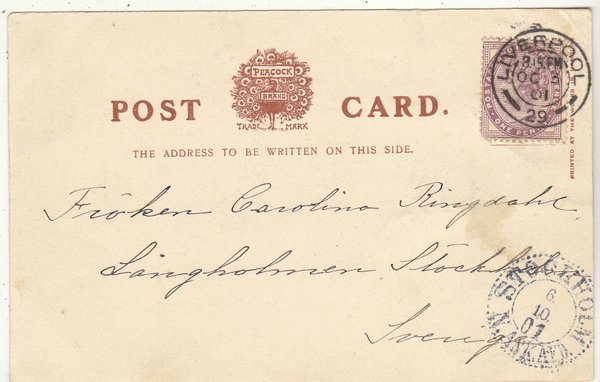 PEACOCK
BRAND
TRADE MARK
POST CARD.
THE ADDRESS TO BE WRITTEN ON THIS SIDE.
LIVERPOOL
8.15 PM
OC 3
01
29
POSTA
ONE PE
PRINTED AT THE
Fröken Carolina Ringdahl,
Långholmen Stockholm
Sverige
STOCKHOLM
6.
10.
01
N. ANK. AFD.